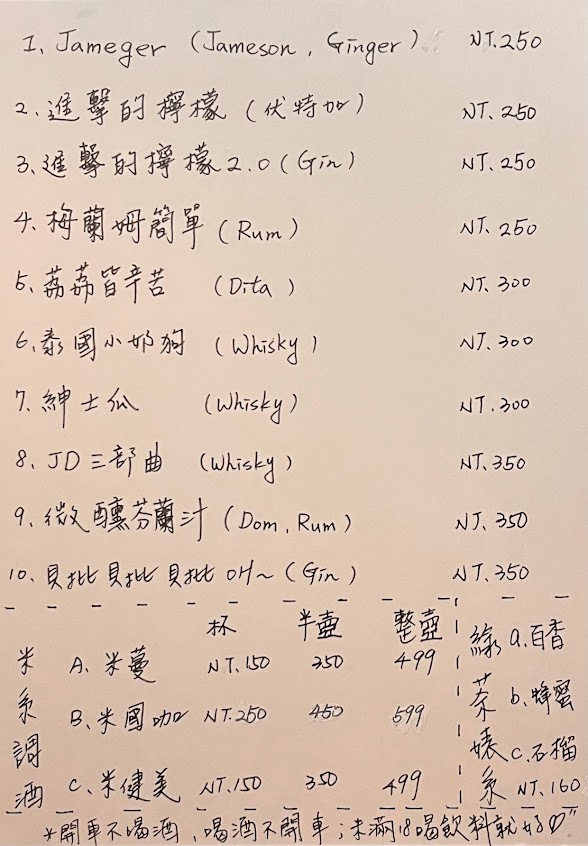 1、Jameger (Jameson, Ginger) NT.250
2、進擊的檸檬 (伏特加) NT.250
3、進擊的檸檬2.0 (Gin) NT.250
4、梅蘭姆簡單 (Rum) NT.250
5、荔荔皆辛苦 (Dita) NT.300
6、泰國小奶狗 (Whisky) NT.300
7、紳士瓜 (Whisky) NT.300
8、JD三部曲 (Whisky) NT.350
9、微醺芬蘭汁 (Dom, Rum) NT.350
10、貝批貝批貝批 OH~ (Gin) NT.350
米系調酒
杯 半壺 整壺
A. 米蔓 NT.150 350 499
B. 米國咖 NT.250 450 599
C. 米健美 NT.150 350 499
綠茶婊系
a. 百香
b. 蜂蜜
c. 石榴
NT.160
*開車不喝酒、喝酒不開車；未滿18喝飲料就好♡"